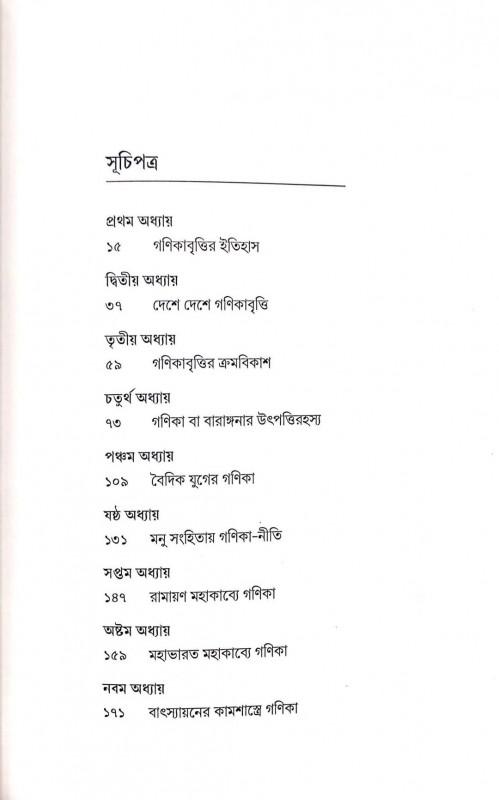 সূচিপত্র
প্রথম অধ্যায়
১৫ গণিকাবৃত্তির ইতিহাস
দ্বিতীয় অধ্যায়
৩৭ দেশে দেশে গণিকাবৃত্তি
তৃতীয় অধ্যায়
৫৯ গণিকাবৃত্তির ক্রমবিকাশ
চতুর্থ অধ্যায়
৭৩ গণিকা বা বারাঙ্গনার উৎপত্তিরহস্য
পঞ্চম অধ্যায়
১০৯ বৈদিক যুগের গণিকা
ষষ্ঠ অধ্যায়
১৩১ মনু সংহিতায় গণিকা-নীতি
সপ্তম অধ্যায়
১৪৭ রামায়ণ মহাকাব্যে গণিকা
অষ্টম অধ্যায়
১৫৯ মহাভারত মহাকাব্যে গণিকা
নবম অধ্যায়
১৭১ বাৎস্যায়নের কামশাস্ত্রে গণিকা